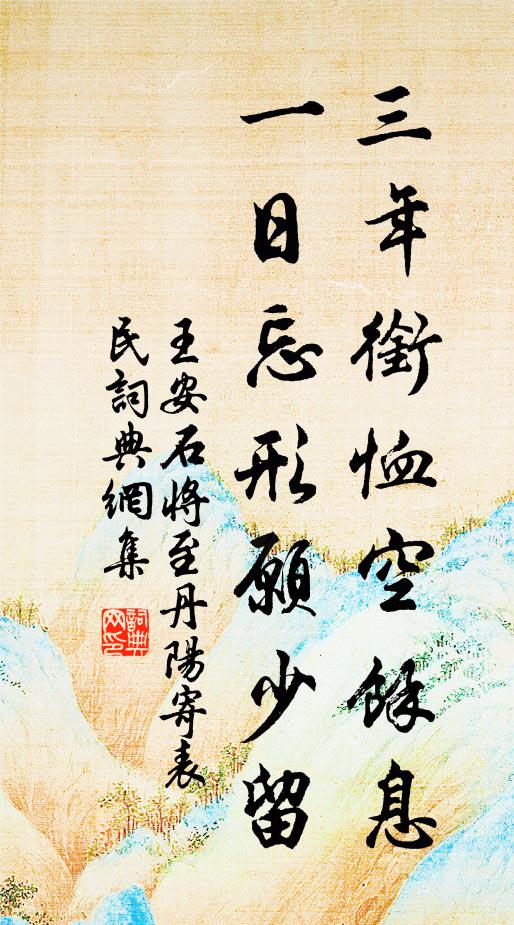 三年銜恤空餘息
一日忘形願少留
王安石將至丹陽寄表
民詞典網集
詞典
网印